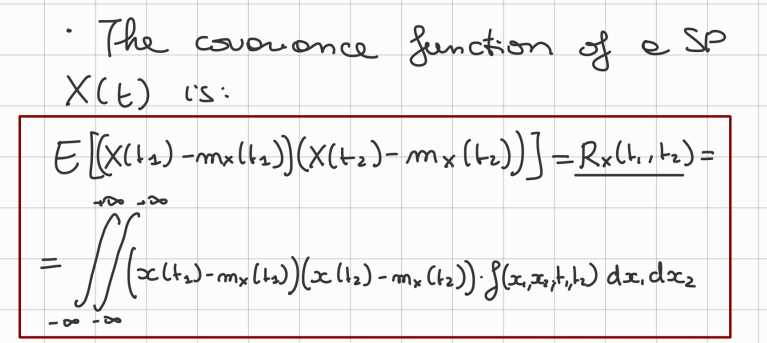 · The covariance function of a SP
X(t) is:
E[(X(t₁)-mₓ(t₁))(X(t₂)-mₓ(t₂))] = Rₓ(t₁,t₂) =
+∞ +∞
= ∬(x(t₁)-mₓ(t₁))(x(t₂)-mₓ(t₂))·f(x₁,x₂,t₁,t₂) dx₁ dx₂
-∞ -∞